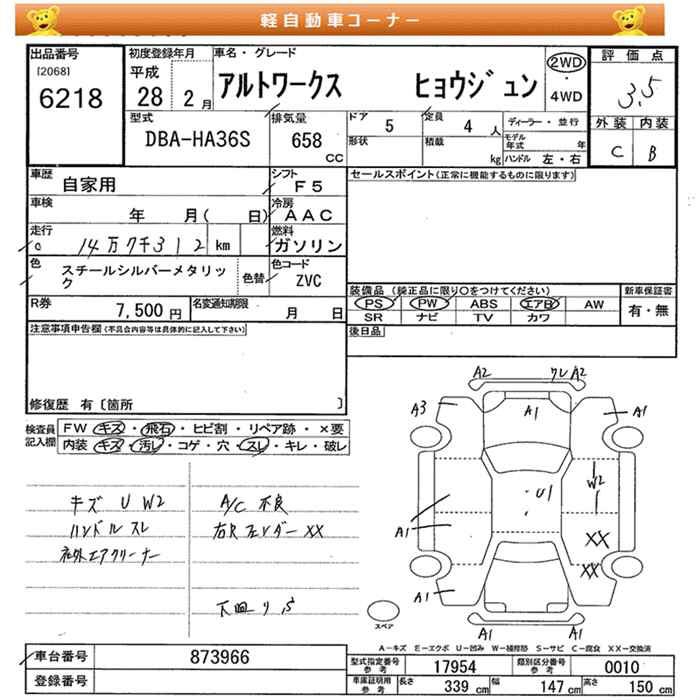 軽自動車コーナー
出品番号
[2068]
6218
初度登録年月
平成
28 2 月
車名・グレード
アルトワークス ヒョウジュン
2WD
4WD
評価点
3.5
外装 内装
C B
型式
DBA-HA36S
排気量
658
cc
ドア
5
定員
4 人
形状
積載
kg
ディーラー・並行
モデル年式 年
ハンドル 左・右
車歴
自家用
シフト
F5
車検
年 月( 日)
冷房
AAC
走行
14万7千312 km
燃料
ガソリン
色
スチールシルバーメタリック
色替
色コード
ZVC
R券
7,500 円
名変通知期限
月 日
セールスポイント(正常に機能するものに限ります)
装備品(純正品に限り○をつけてください)
PS PW ABS エアB AW
SR ナビ TV カワ
新車保証書
有・無
後日品
注意事項申告欄(不具合内容等は具体的に記入して下さい)
修復歴 有〔箇所 〕
検査員記入欄
FW キズ・飛石・ヒビ割・リペア跡・×要
内装 キズ・汚レ・コゲ・穴・スレ・キレ・破レ
キズ U W2
ハンドルスレ
社外エアクリーナー
A/C 不良
右Rフェンダー XX
下回りS
A2 ワレ A2
A3 A1 A1
U1 W2
A1 XX
A1 XX
A1
A1 A1
スペア
A-キズ E-エクボ U-凹み W-補修跡 S-サビ C-腐食 XX-交換済
車台番号 873966
登録番号
型式指定番号 参考 17954
類別区分番号 参考 0010
車庫証明用 参考 長さ 339 cm 幅 147 cm 高さ 150 cm